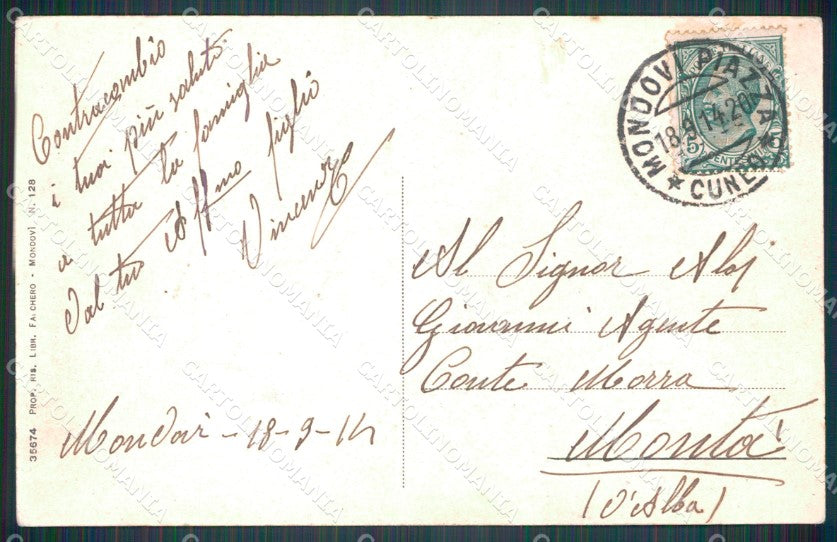 Contracambio
i tuoi più saluti
a tutta la famiglia
Dal tuo Affmo figlio
Vincenzo
Mondovì - 18-9-14
Al Signor Aloj
Giovanni Agente
Conte Morra
Montà
(d'Alba)
MONDOVI PIAZZA
18.9.14.20
★ CUNEO ★
5 CENTESIMI 5
35674 PROP. RIS. LIBR. FALCHERO - MONDOVÌ. N. 128
CARTOLINOMANIA